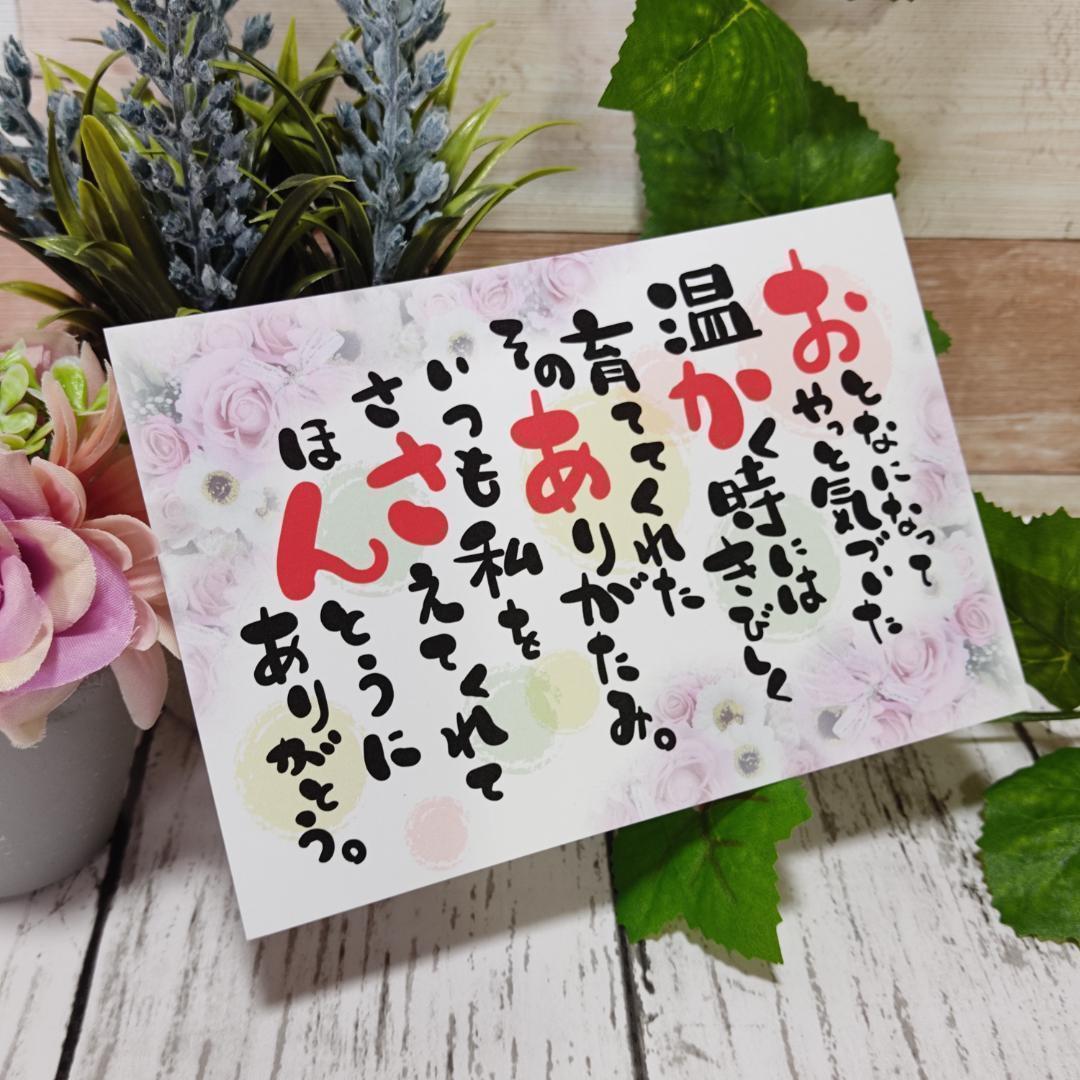 おとなになって
やっと気づいた
温かく時には
きびしく
育ててくれた
そのありがたみ。
いつも私を
ささえてくれて
ほんとうに
ありがとう。